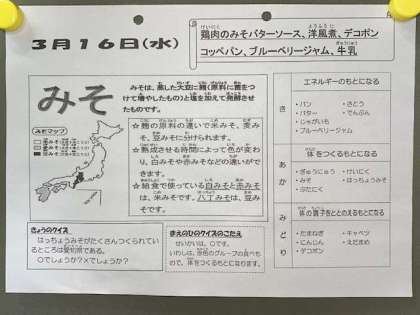 3月16日(水)
鶏肉のみそバターソース、洋風煮、デコポン
コッペパン、ブルーベリージャム、牛乳
みそ
みそは、蒸した大豆に麹(原料に菌をつ
けて増やしたもの)と塩を加えて発酵させ
たものです。
みそマップ
☆麹の原料の違いで米みそ、麦み
そ、豆みそに分けられます。
☆熟成させる時間によって色が変わ
り、白みそや赤みそなどの違いがで
きます。
☆給食で使っている白みそと赤みそ
は、米みそです。八丁みそは、豆み
そです。
きょうのクイズ
はっちょうみそがたくさんつくられてい
るところは愛知県である。
○でしょうか?×でしょうか?
まえのひのクイズのこたえ
せいかいは、○です。
いわしは、赤色のグループの食べも
ので、体をつくるもとになります。
エネルギーのもとになる
き
・パン ・さとう
・バター ・でんぷん
・じゃがいも
・ブルーベリージャム
体をつくるもとになる
あか
・ぎゅうにゅう ・けいにく
・みそ ・はっちょうみそ
・ぶたにく
体の調子をととのえるもとになる
みどり
・たまねぎ ・キャベツ
・にんじん ・えだまめ
・デコポン